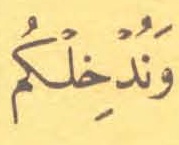 وَنُدْخِلْكُم